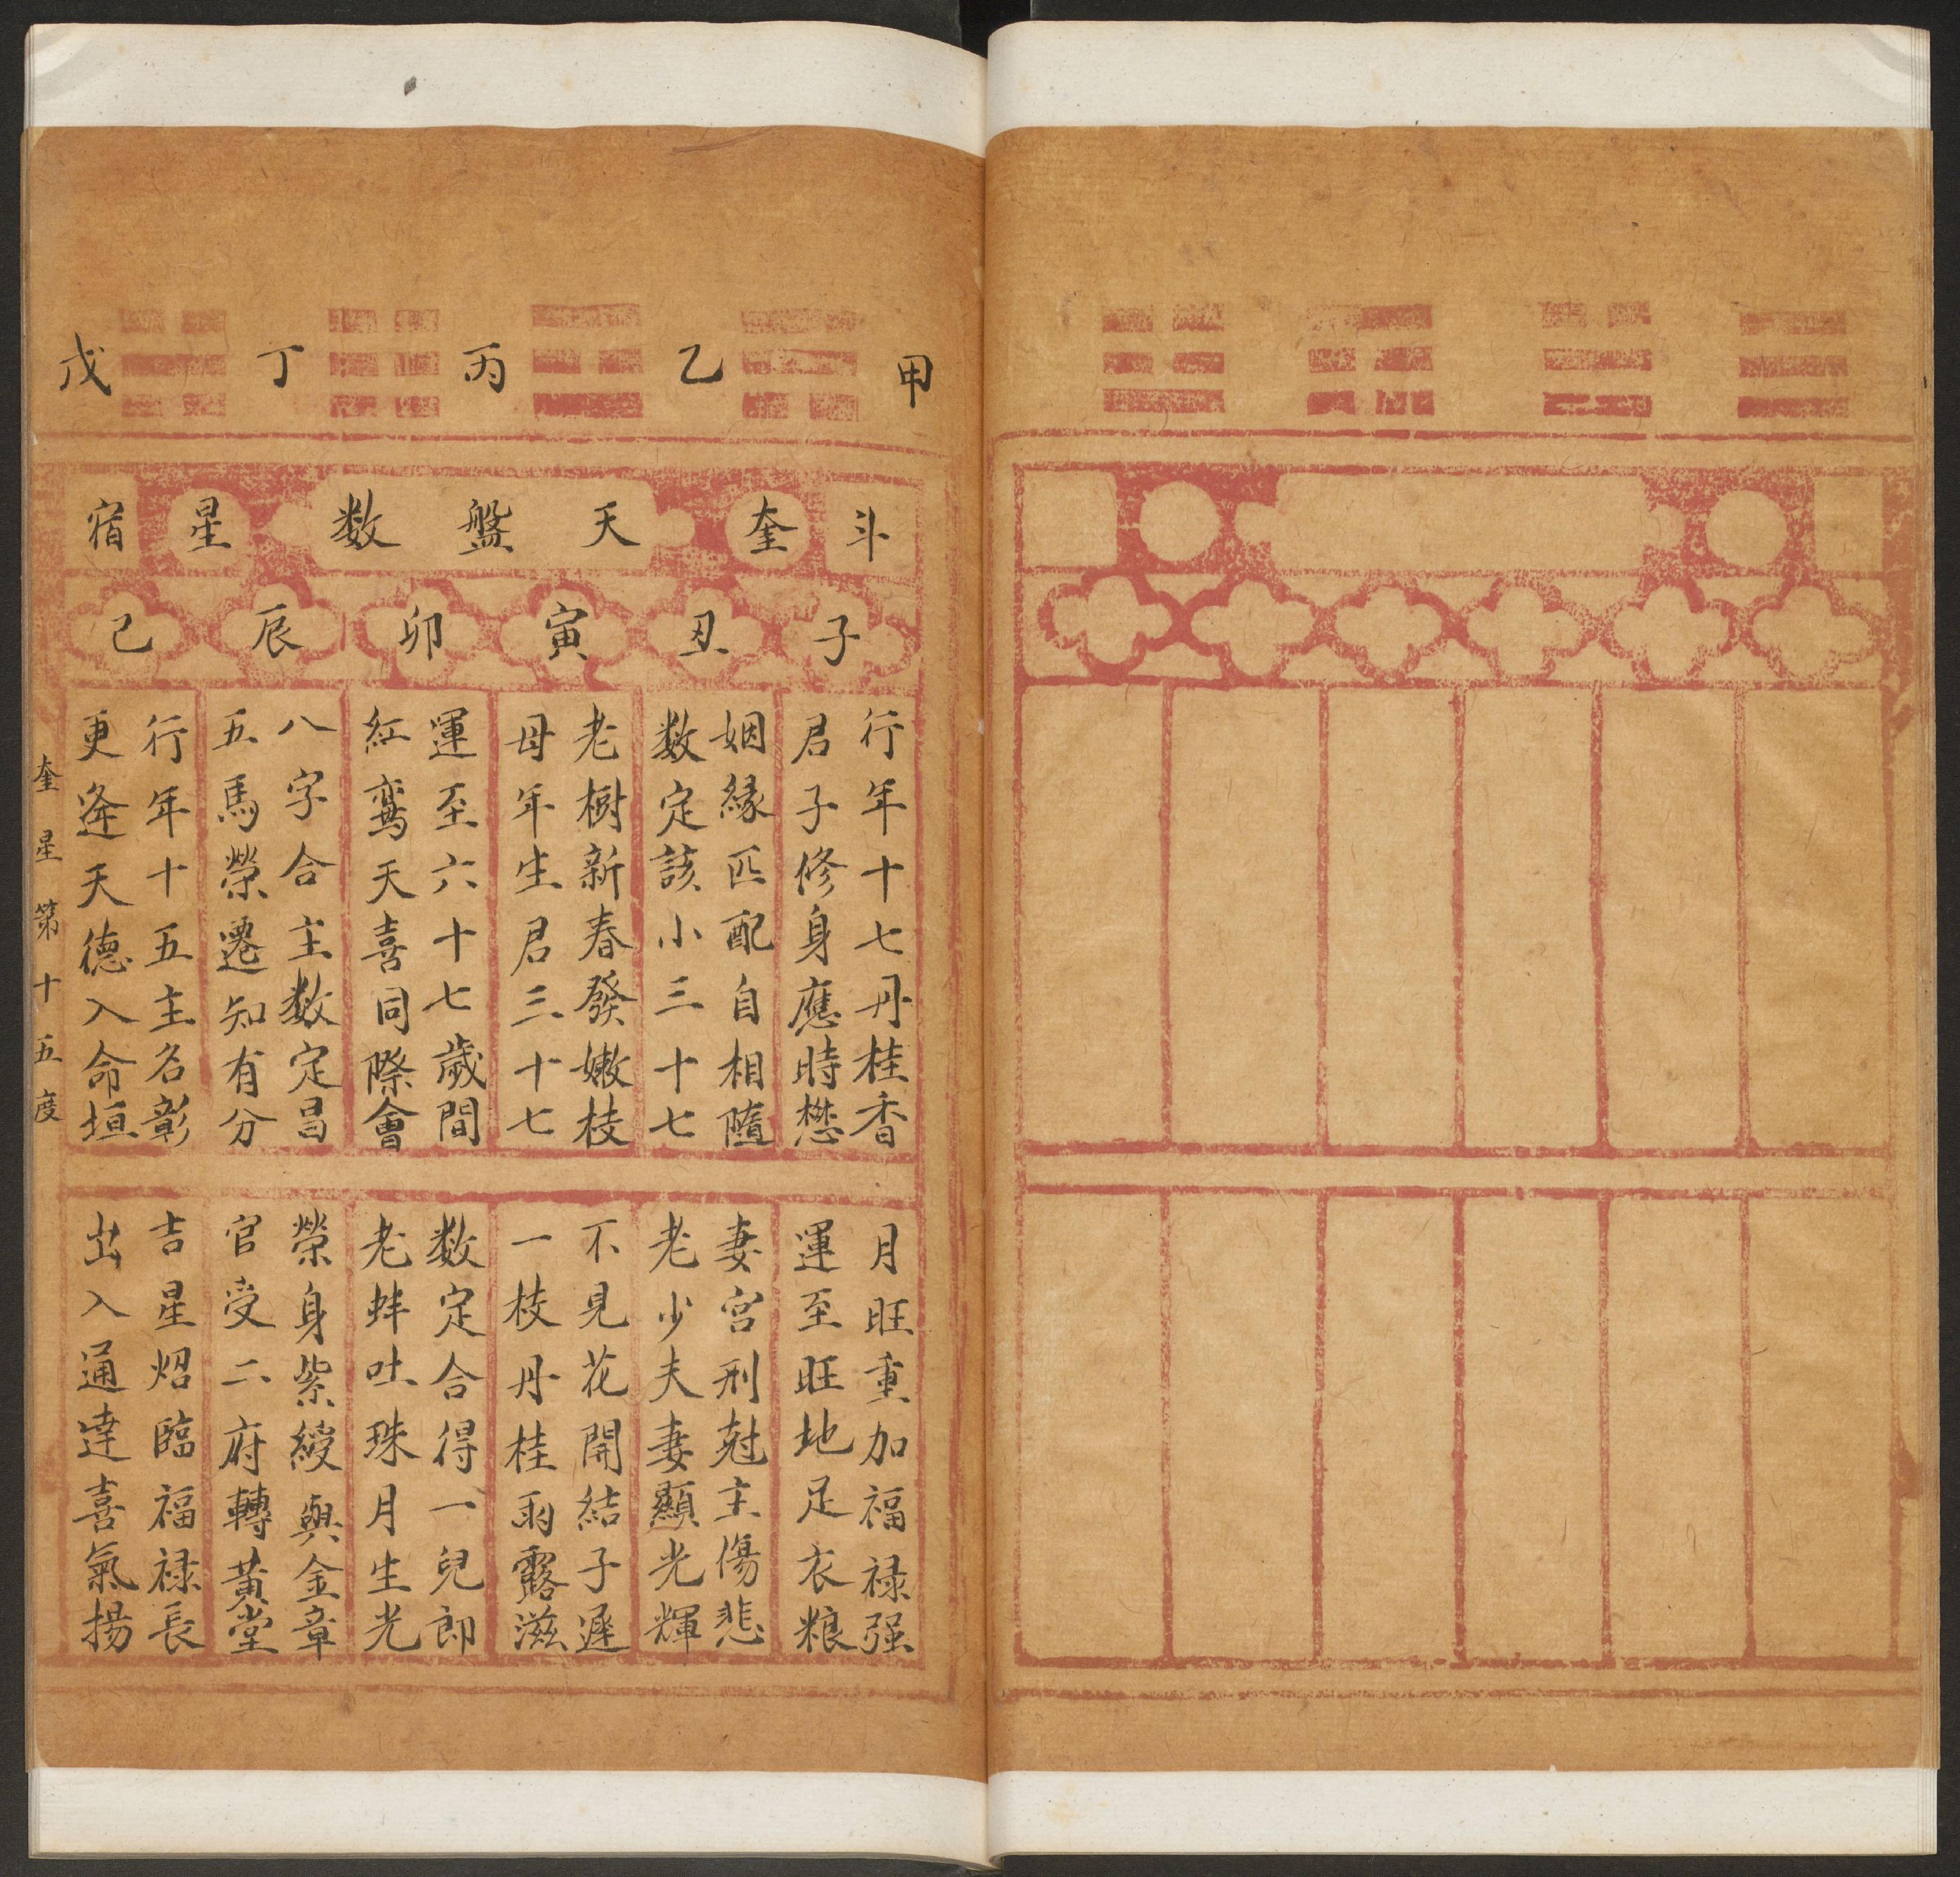 甲乙丙丁戊
斗奎天盤数星宿
子丑寅卯辰己
行年十七丹桂香
君子修身應時懋
姻縁匹配自相隨
数定該小三十七
老樹新春發嫩枝
母年生君三十七
運至六十七歲間
紅鸾天喜同際會
八字合主数定昌
五馬榮遷知有分
行年十五主名彰
更逢天德入命垣
月旺重加福禄强
運至旺地足衣粮
妻宮刑尅主傷悲
老少夫妻顯光輝
不見花開結子遲
一枝丹桂雨露滋
数定合得一兒郎
老蚌吐珠月生光
榮身紫綬與金章
官受二府轉黃堂
吉星炤臨福禄長
出入通達喜氣揚
奎星第十五度